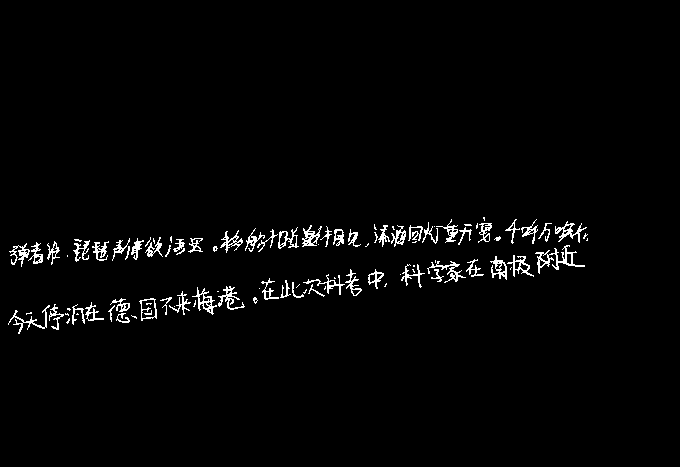 弹者谁,琵琶声停欲语迟。移船相近邀相见,添酒回灯重开宴。千呼万唤
今天停泊在德国不来梅港。在此次科考中,科学家在南极附近